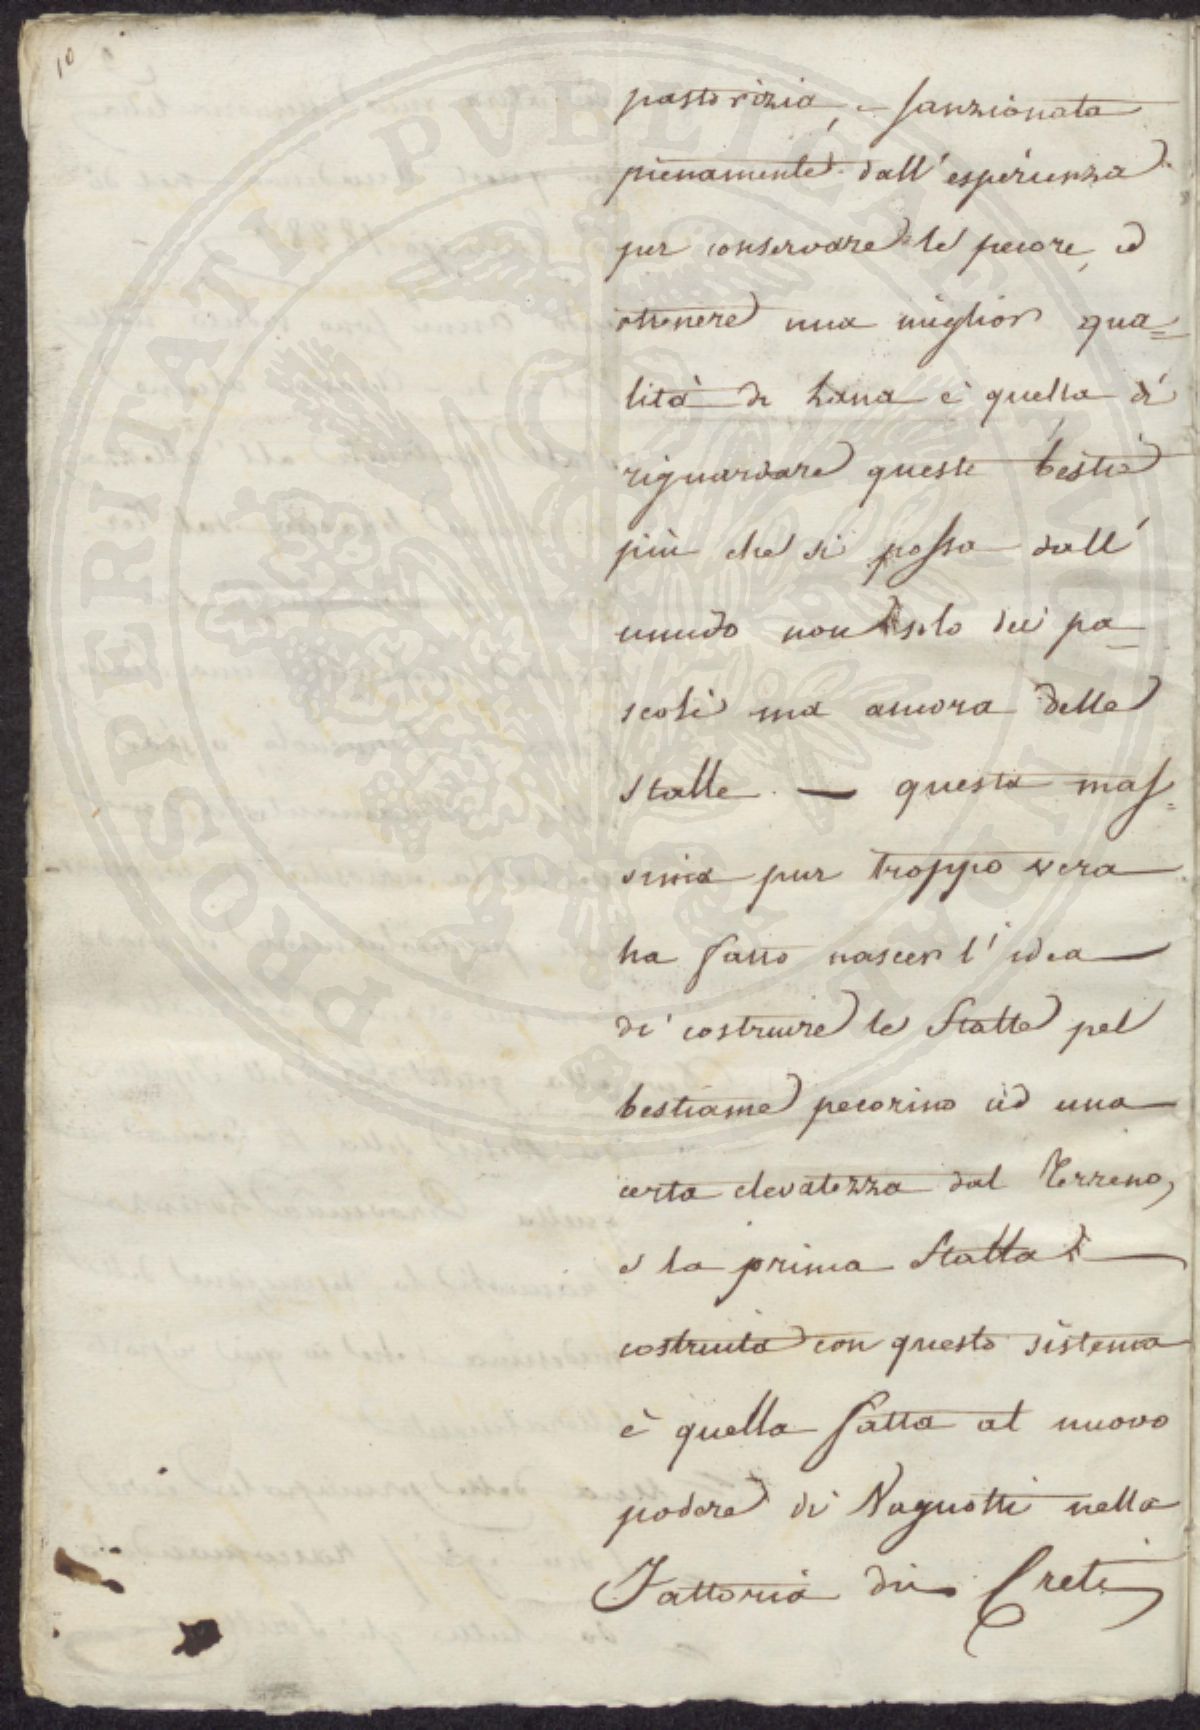 10
pastorizia, e sanzionata
pienamente dall'esperienza
per conservare le pecore, ed
ottenere una miglior qua=
lità di Lana è quella di
riguardare queste bestie
più che si possa dall'
umido non solo dei pa=
scoli ma ancora delle
stalle. — questa mas=
sima pur troppo vera
ha fatto nascer l'idea
di costruire le Stalle pel
bestiame pecorino ad una
certa elevatezza dal Terreno,
e la prima Stalla
costruita con questo sistema
è quella fatta al nuovo
podere di Nagnotti nella
Fattoria di Creti
PROSPERITATI PVBLICAE